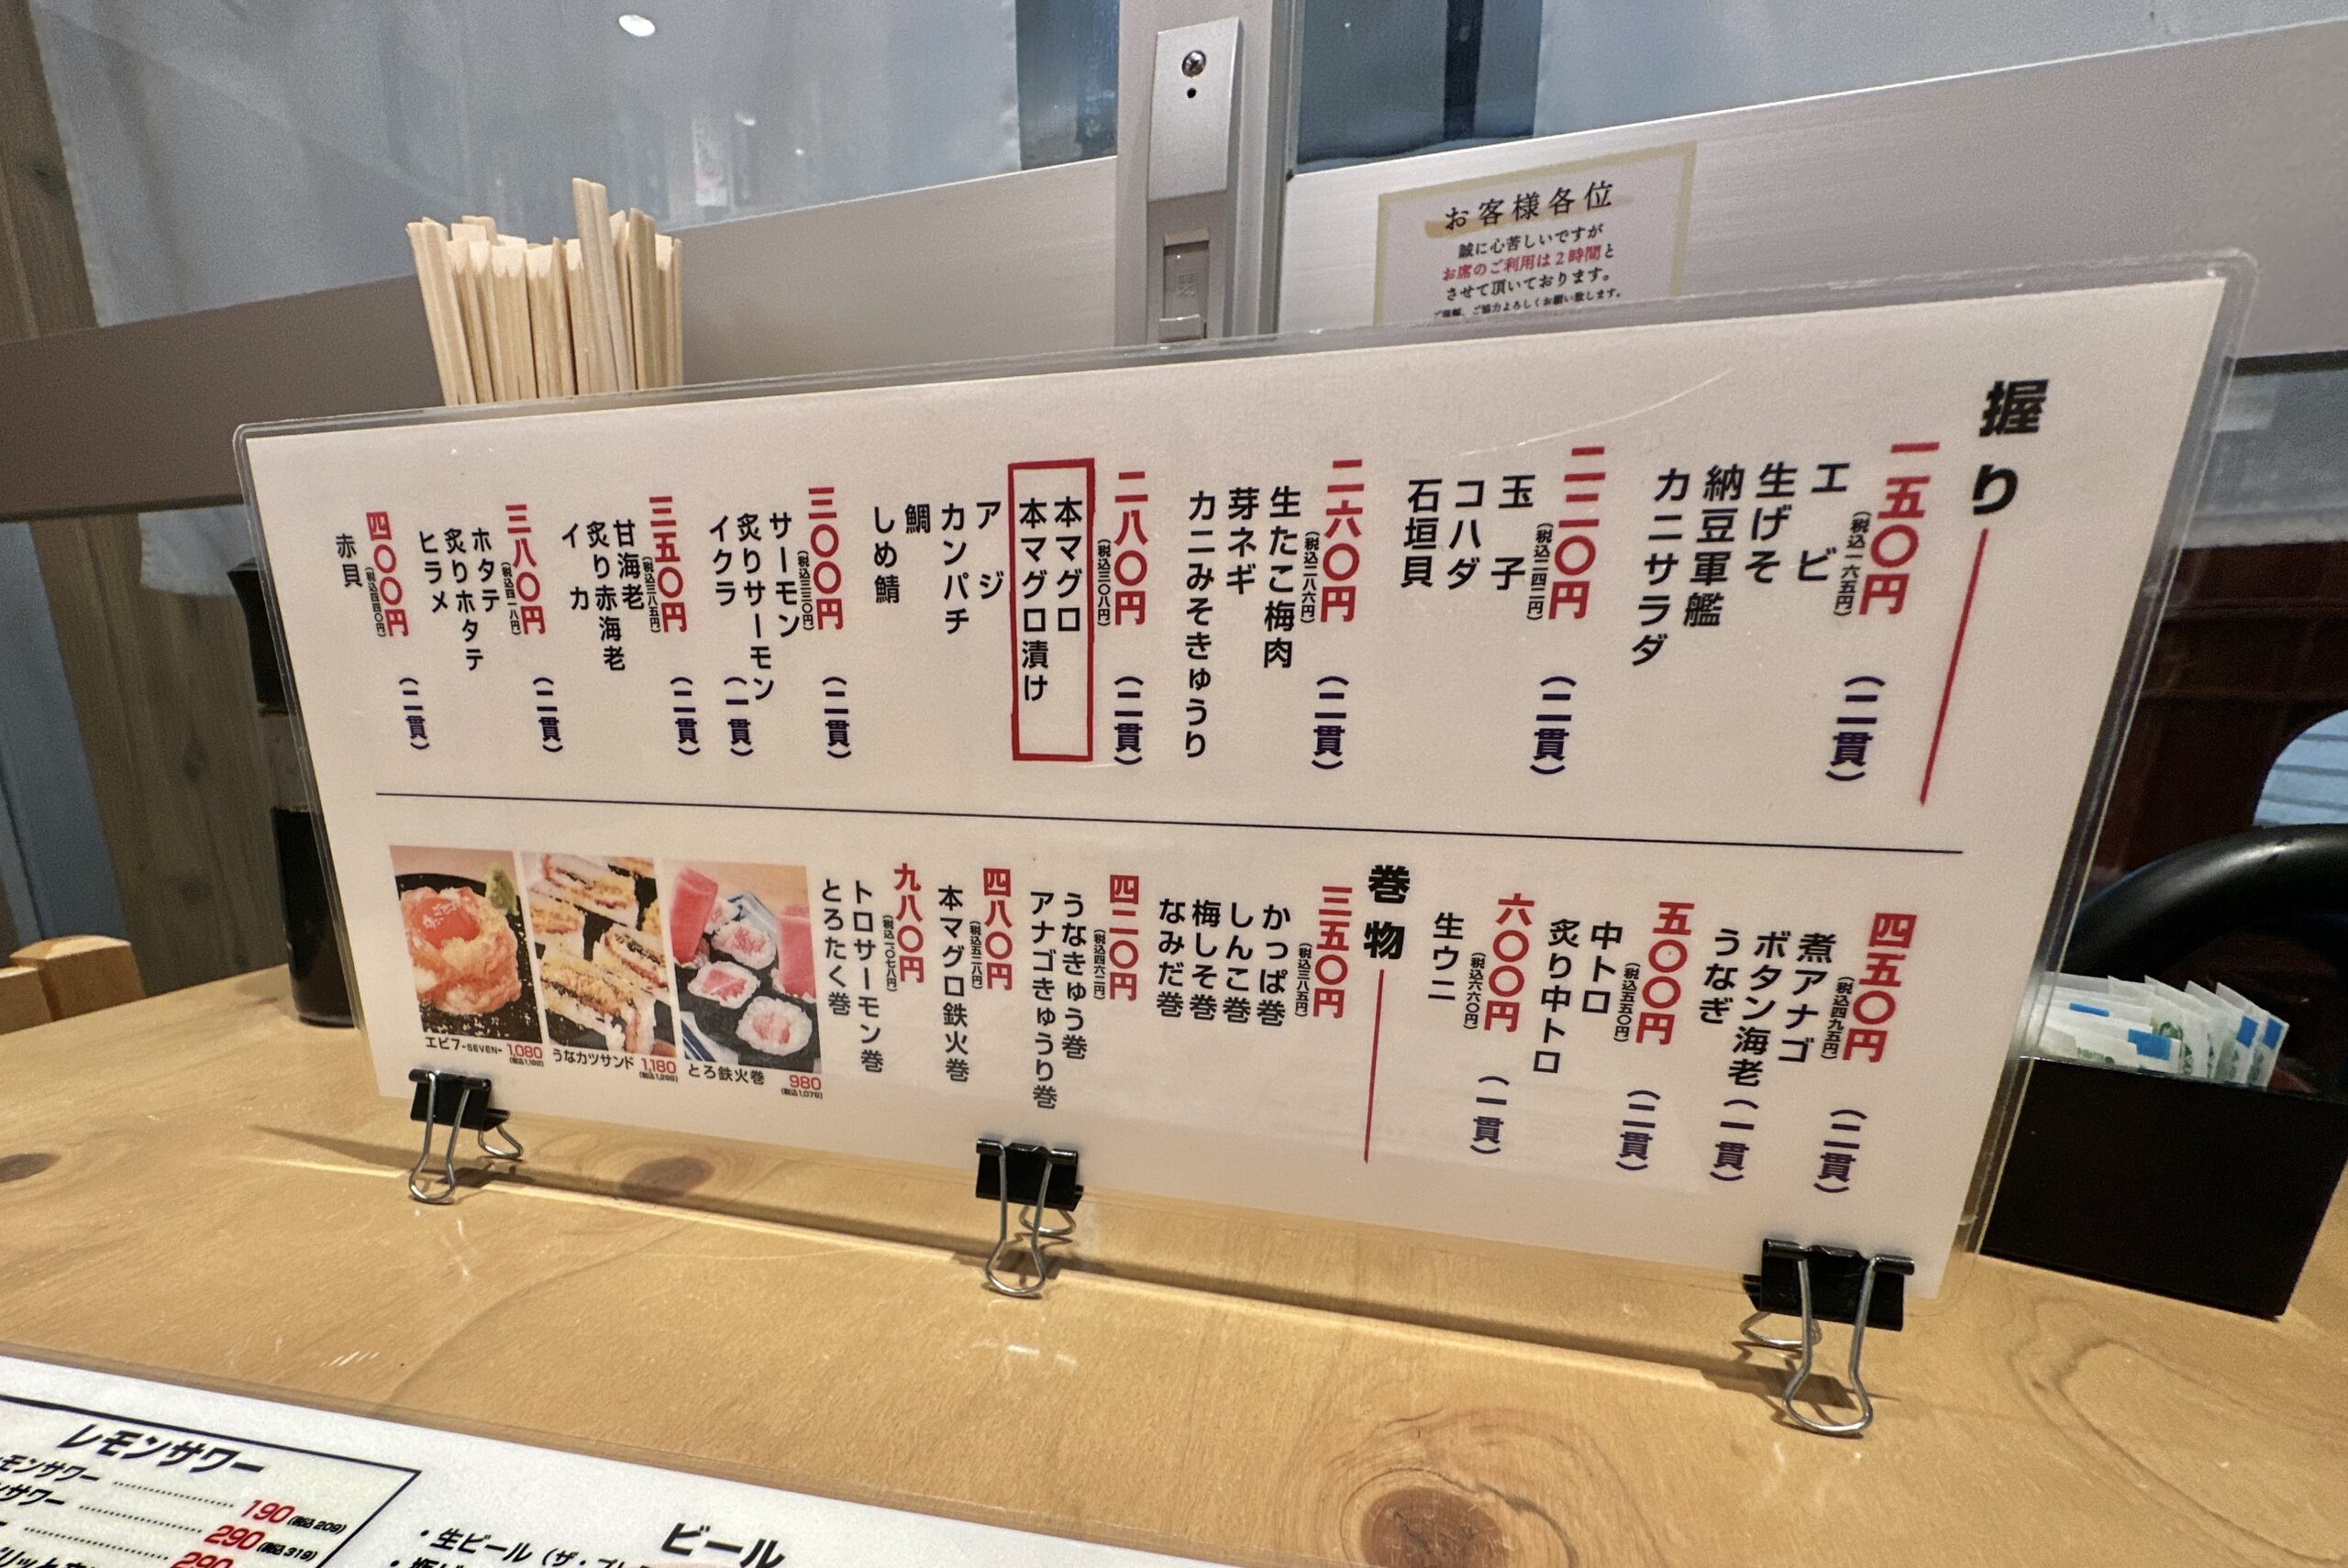 お客様各位
誠に心苦しいですが
お席のご利用は2時間と
させて頂いております。
ご理解、ご協力よろしくお願い致します。
握り
一五〇円（税込一六五円）（二貫）
エビ
生げそ
納豆軍艦
カニサラダ
二二〇円（税込二四二円）（二貫）
玉子
コハダ
石垣貝
二六〇円（税込二八六円）（二貫）
生たこ梅肉
芽ネギ
カニみそきゅうり
二八〇円（税込三〇八円）（二貫）
本マグロ
本マグロ漬け
アジ
カンパチ
鯛
しめ鯖
三〇〇円（税込三三〇円）（二貫）
サーモン
炙りサーモン
イクラ（一貫）
三五〇円（税込三八五円）（二貫）
甘海老
炙り赤海老
イカ
三八〇円（税込四一八円）（二貫）
ホタテ
炙りホタテ
ヒラメ
四〇〇円（税込四四〇円）（二貫）
赤貝
四五〇円（税込四九五円）（二貫）
煮アナゴ
ボタン海老（一貫）
うなぎ
五〇〇円（税込五五〇円）（二貫）
中トロ
炙り中トロ
六〇〇円（税込六六〇円）（一貫）
生ウニ
巻物
三五〇円（税込三八五円）
かっぱ巻
しんこ巻
梅しそ巻
なみだ巻
四二〇円（税込四六二円）
うなきゅう巻
アナゴきゅうり巻
四八〇円（税込五二八円）
本マグロ鉄火巻
九八〇円（税込一〇七八円）
トロサーモン巻
とろたく巻
とろ鉄火巻 980
うなカツサンド 1,180
エビ7-SEVEN- 1,080
レモンサワー
モンサワー 190（税込209）
サワー 290（税込319）
290
ビール
・生ビール（ザ・プレ